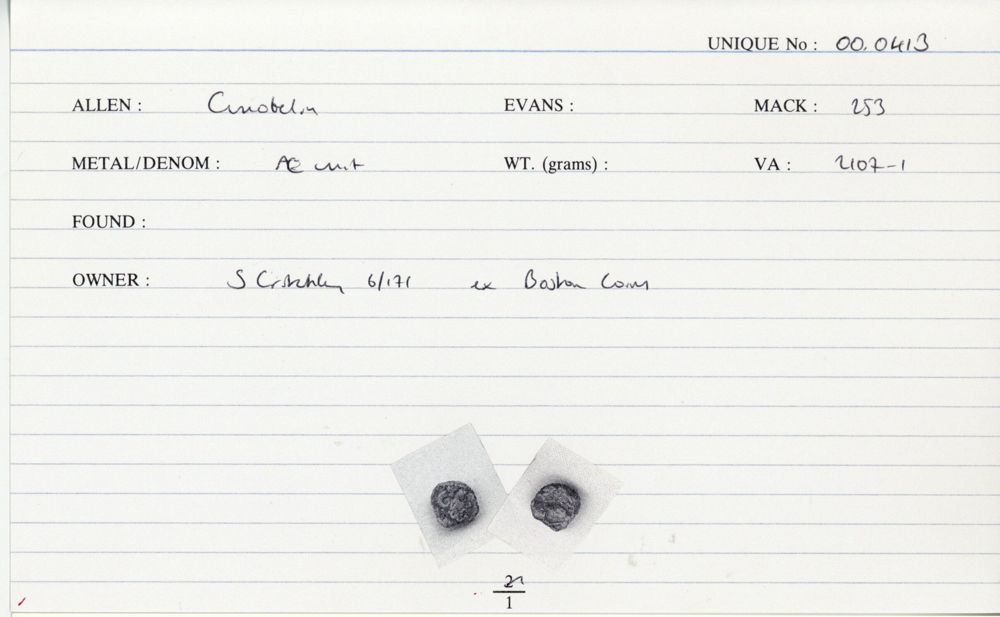 UNIQUE No : 00.0413
ALLEN : Cunobelin EVANS : MACK : 253
METAL/DENOM : Æ unit WT. (grams) : VA : 2107-1
FOUND :
OWNER : S Critchley 6/171 ex Boston Coins
1